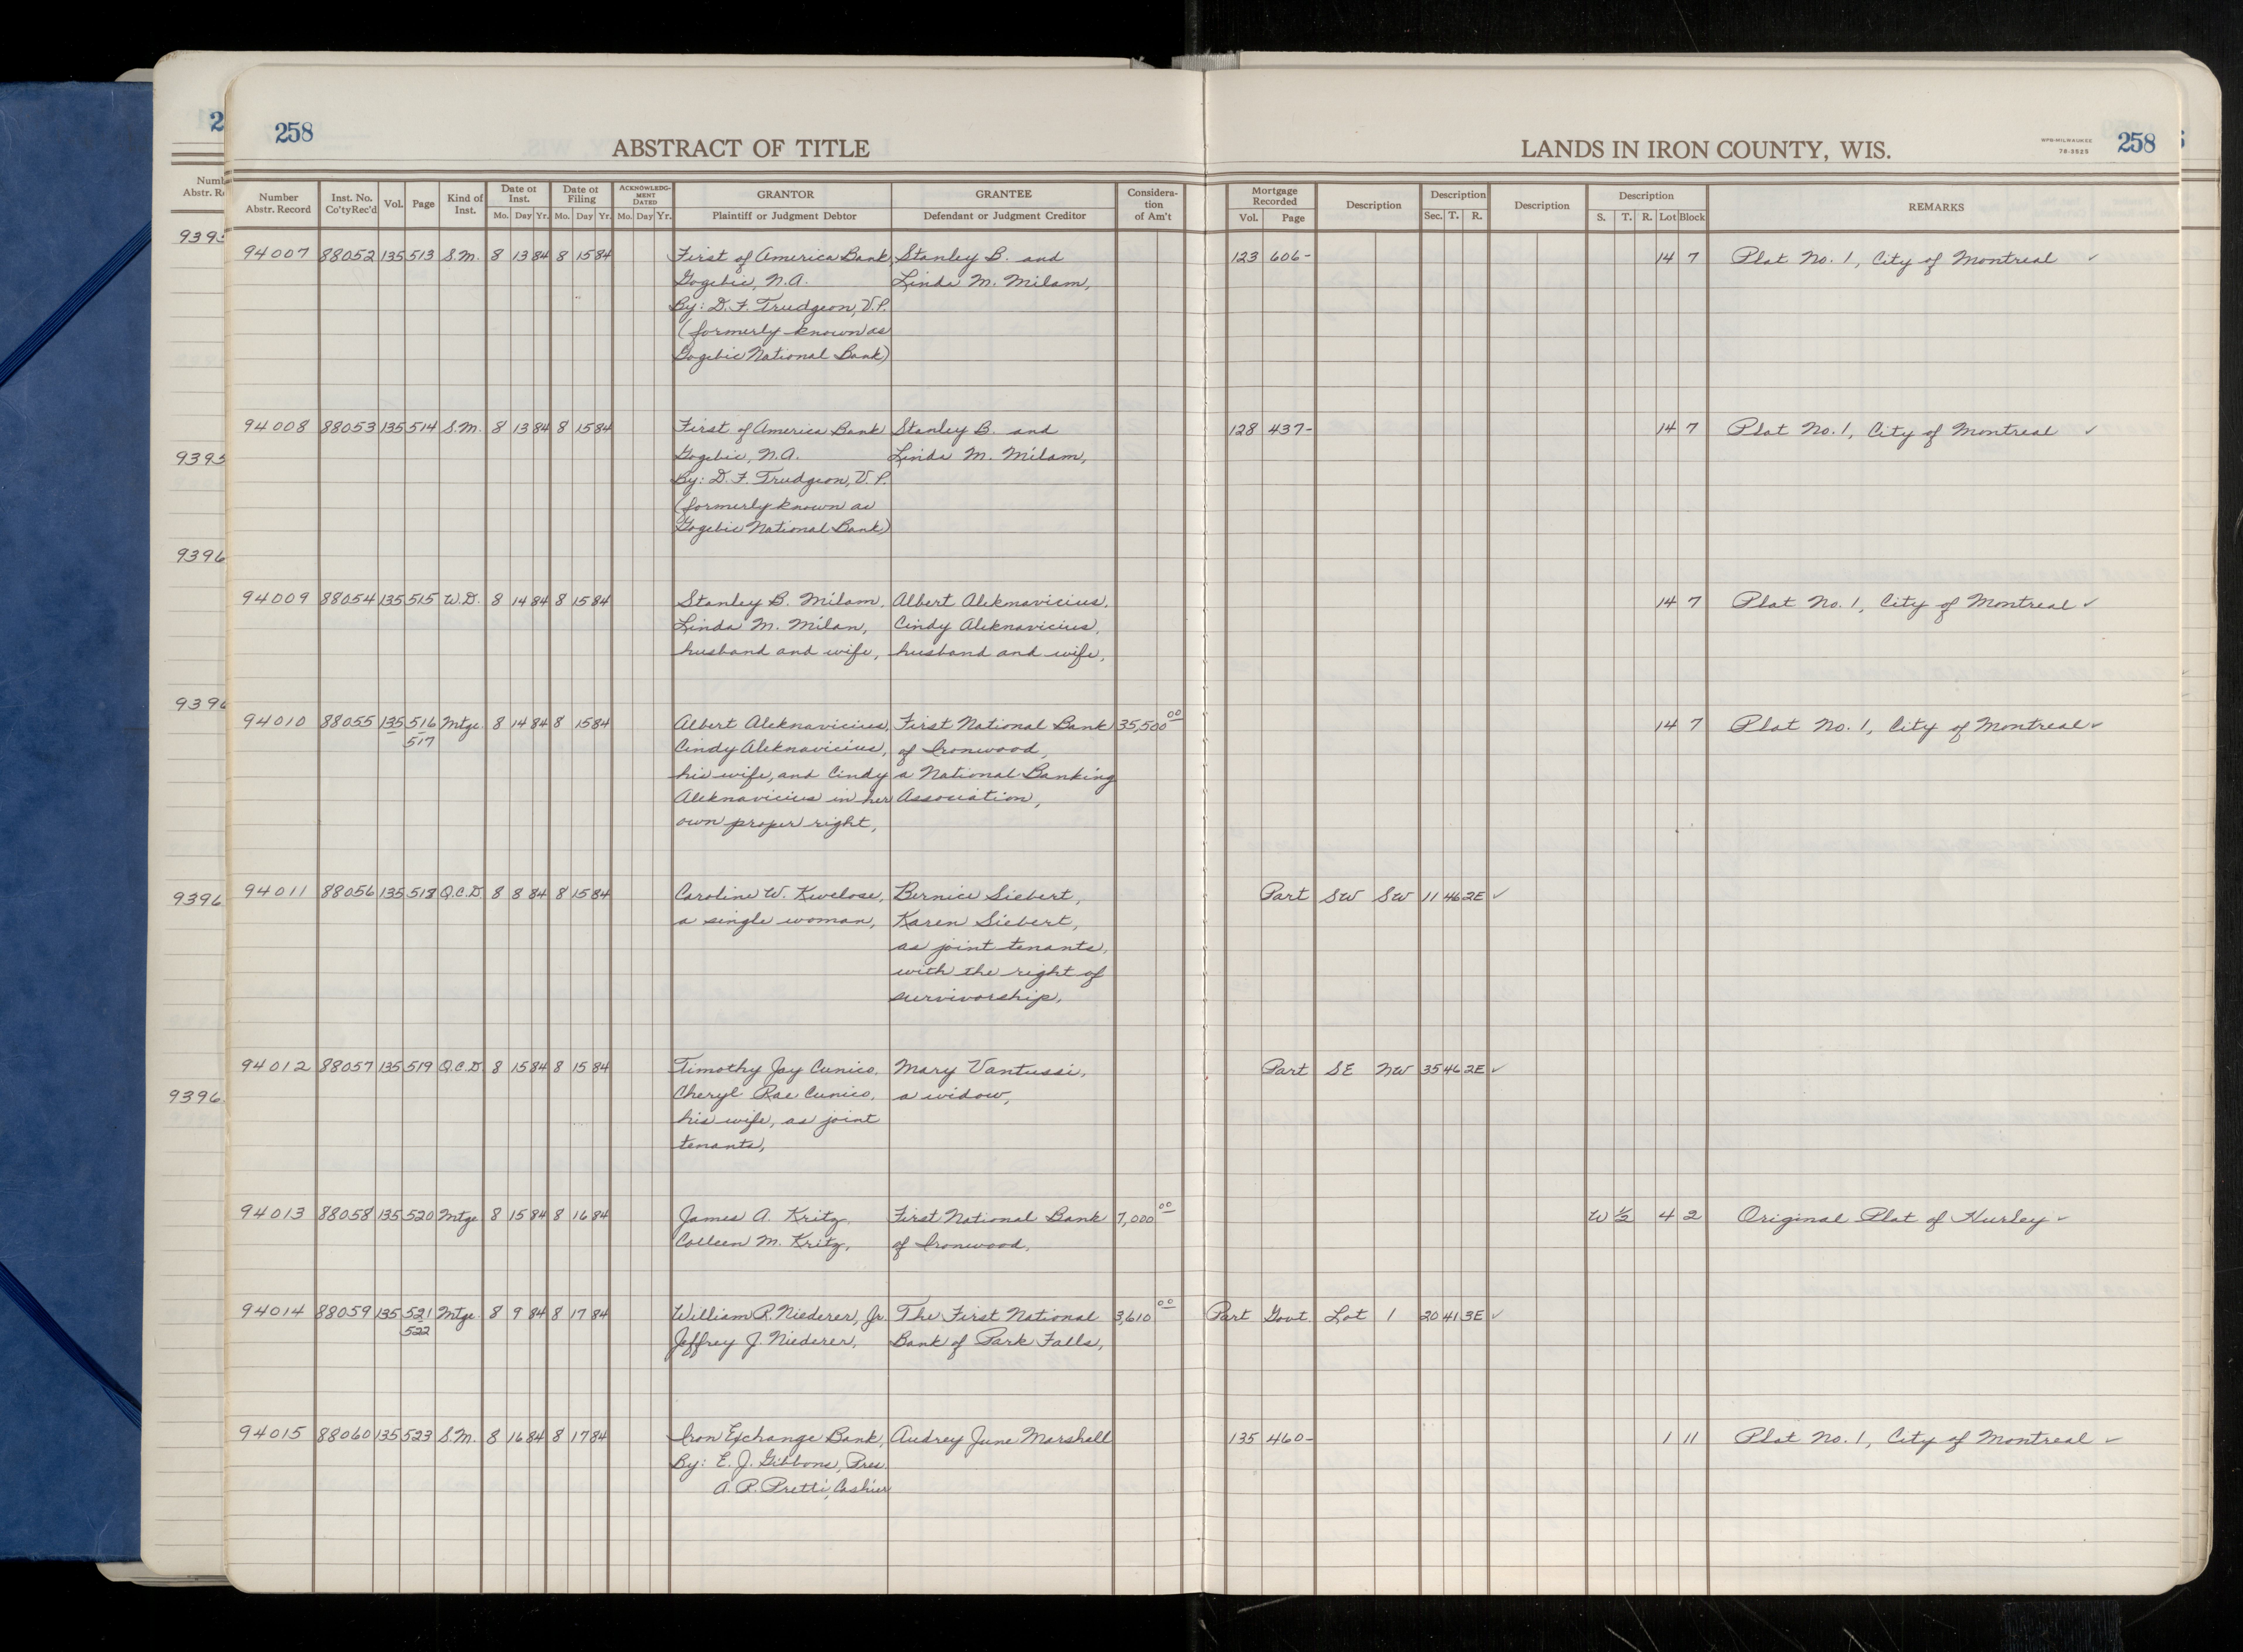 258
ABSTRACT OF TITLE
LANDS IN IRON COUNTY, WIS.
WPB-MILWAUKEE
78-3525
258
Number Abstr. Record | Inst. No. Co'ty Rec'd | Vol. | Page | Kind of Inst. | Date of Inst. Mo. Day Yr. | Date of Filing Mo. Day Yr. | ACKNOWLEDGMENT DATED Mo. Day Yr. | GRANTOR Plaintiff or Judgment Debtor | GRANTEE Defendant or Judgment Creditor | Considera-tion of Am't | Mortgage Recorded Vol. Page | Description | Description Sec. T. R. | Description | Description S. T. R. Lot Block | REMARKS
94007 88052 135 513 S.M. 8 13 84 8 15 84 First of America Bank, Stanley B. and 123 606- 14 7 Plat No. 1, City of Montreal ✓
Gogebic, N.A. Linda M. Milam,
By: D.F. Trudgeon, V.P.
(formerly known as
Gogebic National Bank)
94008 88053 135 514 S.M. 8 13 84 8 15 84 First of America Bank Stanley B. and 128 437- 14 7 Plat No. 1, City of Montreal ✓
Gogebic, N.A. Linda M. Milam,
By: D.F. Trudgeon, V.P.
(formerly known as
Gogebic National Bank)
94009 88054 135 515 W.D. 8 14 84 8 15 84 Stanley B. Milam, Albert Aleknavicius, 14 7 Plat No. 1, City of Montreal ✓
Linda M. Milan, Cindy Aleknavicius,
husband and wife, husband and wife,
94010 88055 135 516 Mtge. 8 14 84 8 15 84 Albert Aleknavicius, First National Bank 35,500 00 14 7 Plat No. 1, City of Montreal ✓
517 Cindy Aleknavicius, of Ironwood,
his wife, and Cindy a National Banking
Aleknavicius in her Association,
own proper right,
94011 88056 135 518 Q.C.D. 8 8 84 8 15 84 Caroline W. Kwelose, Bernice Siebert, Part SW SW 11 46 2E ✓
a single woman, Karen Siebert,
as joint tenants,
with the right of
survivorship,
94012 88057 135 519 Q.C.D. 8 15 84 8 15 84 Timothy Jay Cunico, Mary Vantussi, Part SE NW 35 46 2E ✓
Cheryl Rae Cunico, a widow,
his wife, as joint
tenants,
94013 88058 135 520 Mtge 8 15 84 8 16 84 James A. Kritz, First National Bank 7,000 00 W 1/2 4 2 Original Plat of Hurley ✓
Colleen M. Kritz, of Ironwood,
94014 88059 135 521 Mtge. 8 9 84 8 17 84 William R. Niederer, Jr. The First National 3,610 00 Part Govt. Lot 1 20 41 3E ✓
522 Jeffrey J. Niederer, Bank of Park Falls,
94015 88060 135 523 S.M. 8 16 84 8 17 84 Iron Exchange Bank, Audrey June Marshall 135 460- 1 11 Plat No. 1, City of Montreal ✓
By: E.J. Gibbons, Pres.
A.P. Pretti, Cashier